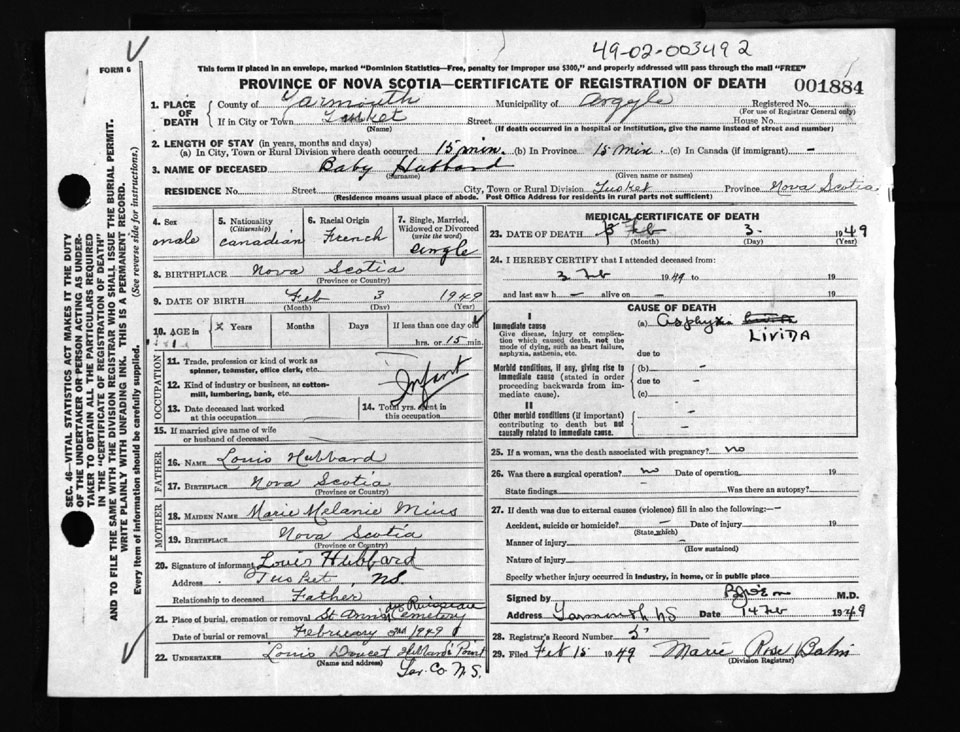 49-02-003492
FORM 6
This form if placed in an envelope, marked "Dominion Statistics—Free, penalty for improper use $300," and properly addressed will pass through the mail "FREE"
PROVINCE OF NOVA SCOTIA—CERTIFICATE OF REGISTRATION OF DEATH 001884
1. PLACE OF DEATH County of Yarmouth Municipality of Argyle Registered No.
(For use of Registrar General only)
If in City or Town Tusket Street House No.
(Name) (If death occurred in a hospital or institution, give the name instead of street and number)
2. LENGTH OF STAY (in years, months and days)
(a) In City, Town or Rural Division where death occurred 15 min. (b) In Province 15 min. (c) In Canada (if immigrant) –
3. NAME OF DECEASED Baby Hubbard
(Surname) (Given name or names)
RESIDENCE No. Street City, Town or Rural Division Tusket Province Nova Scotia
(Residence means usual place of abode. Post Office Address for residents in rural parts not sufficient)
4. Sex male
5. Nationality (Citizenship) Canadian
6. Racial Origin French
7. Single, Married, Widowed or Divorced (write the word) Single
8. BIRTHPLACE Nova Scotia
(Province or Country)
9. DATE OF BIRTH Feb 3 1949
(Month) (Day) (Year)
10. AGE in Years Months Days If less than one day old
hrs. or 15 min.
OCCUPATION
11. Trade, profession or kind of work as spinner, teamster, office clerk, etc.
12. Kind of industry or business, as cotton-mill, lumbering, bank, etc.
Infant
13. Date deceased last worked at this occupation
14. Total yrs. spent in this occupation
15. If married give name of wife or husband of deceased
FATHER
16. NAME Louis Hubbard
17. BIRTHPLACE Nova Scotia
(Province or Country)
MOTHER
18. MAIDEN NAME Marie Melanie Mius
19. BIRTHPLACE Nova Scotia
(Province or Country)
20. Signature of informant Louis Hubbard
Address Tusket, N.S.
Relationship to deceased Father
21. Place of burial, cremation or removal St Ann's Ruisseau Cemetery
Date of burial or removal February 3rd 1949
22. UNDERTAKER Louis Doucet
(Name and address)
Yar. Co N.S.
MEDICAL CERTIFICATE OF DEATH
23. DATE OF DEATH Feb 3 1949
(Month) (Day) (Year)
24. I HEREBY CERTIFY that I attended deceased from:
3 Feb 1949 to 19
and last saw h – alive on – 19
CAUSE OF DEATH
I
Immediate cause
Give disease, injury or complication which caused death, not the mode of dying, such as heart failure, asphyxia, asthenia, etc.
(a) Asphyxia
LIVIDA
due to
Morbid conditions, if any, giving rise to immediate cause (stated in order proceeding backwards from immediate cause).
(b) –
due to –
(c)
II
Other morbid conditions (if important) contributing to death but not causally related to immediate cause.
25. If a woman, was the death associated with pregnancy? no
26. Was there a surgical operation? no Date of operation 19
State findings Was there an autopsy?
27. If death was due to external causes (violence) fill in also the following:—
Accident, suicide or homicide? – Date of injury 19
(State which)
Manner of injury
(How sustained)
Nature of injury
Specify whether injury occurred in industry, in home, or in public place
Signed by M.D.
Address Yarmouth NS Date 14 Feb 1949
28. Registrar's Record Number 5
29. Filed Feb 15 1949 Marie Rose
(Division Registrar)
SEC. 46—VITAL STATISTICS ACT MAKES IT THE DUTY
OF THE UNDERTAKER OR PERSON ACTING AS UNDER-
TAKER TO OBTAIN ALL THE PARTICULARS REQUIRED
IN THE "CERTIFICATE OF REGISTRATION OF DEATH"
AND TO FILE THE SAME WITH THE DIVISION REGISTRAR WHO SHALL ISSUE THE BURIAL PERMIT.
WRITE PLAINLY WITH UNFADING INK. THIS IS A PERMANENT RECORD.
Every item of information should be carefully supplied. (See reverse side for instructions.)